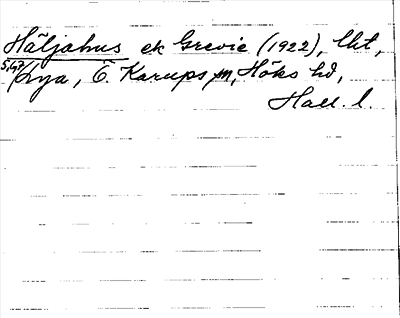 Häljahus ek Grevie (1922), lht,
5,67/Lya, Ö. Karups sn, Höks hd,
Hall. l.